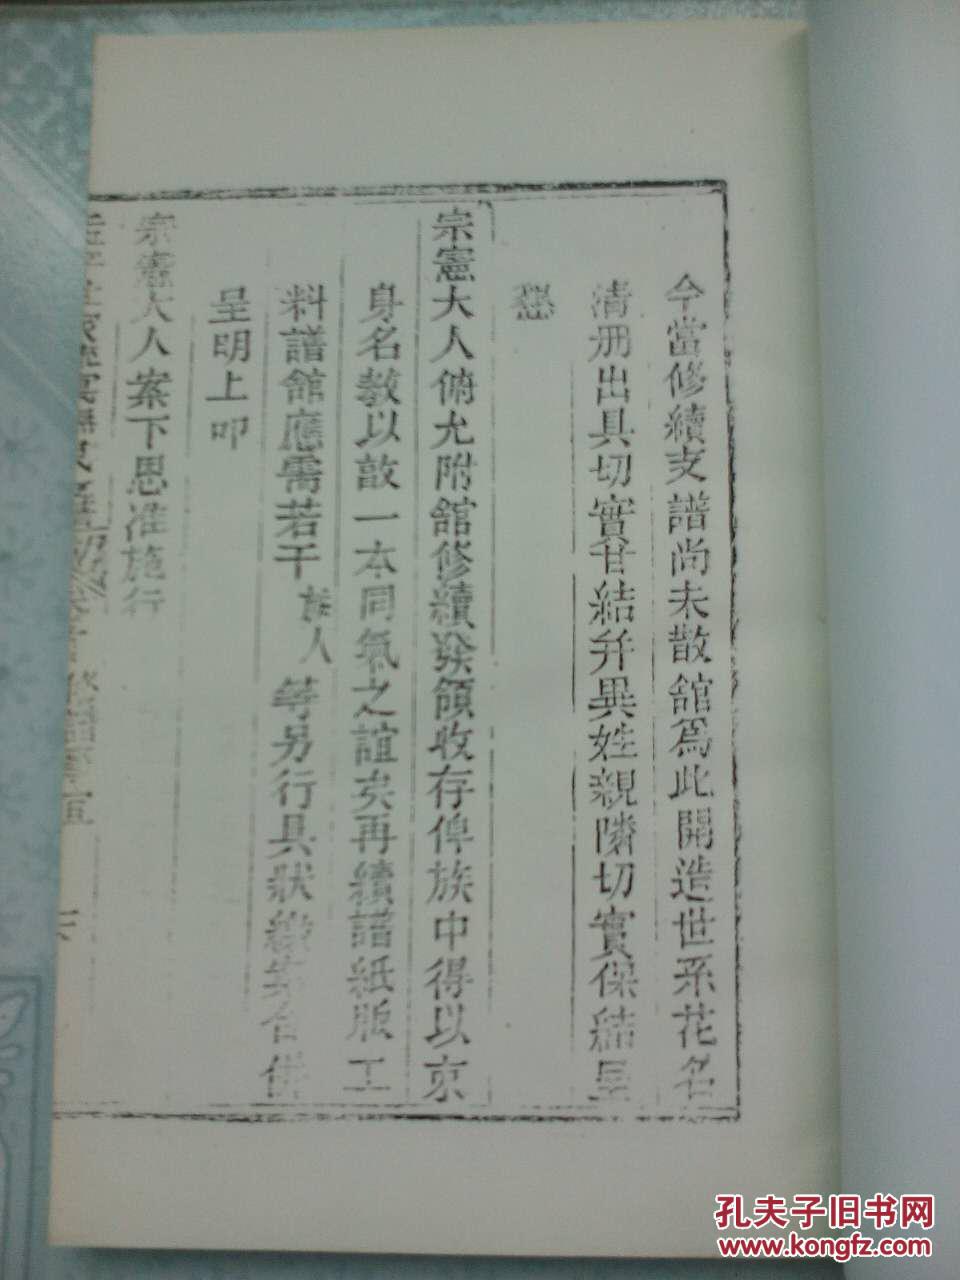 今當修續支譜尚未散舘爲此開造世系花名
清册出具切實甘結幷異姓親隣切實保結呈
懇
宗憲大人俯允附舘修續發領收存俾族中得以束
身名教以敦一本同氣之誼矣再續譜紙版工
料譜舘應需若干族人等另行具狀繳案合併
呈明上叩
宗憲大人案下恩准施行
孔夫子旧书网
www.kongfz.com